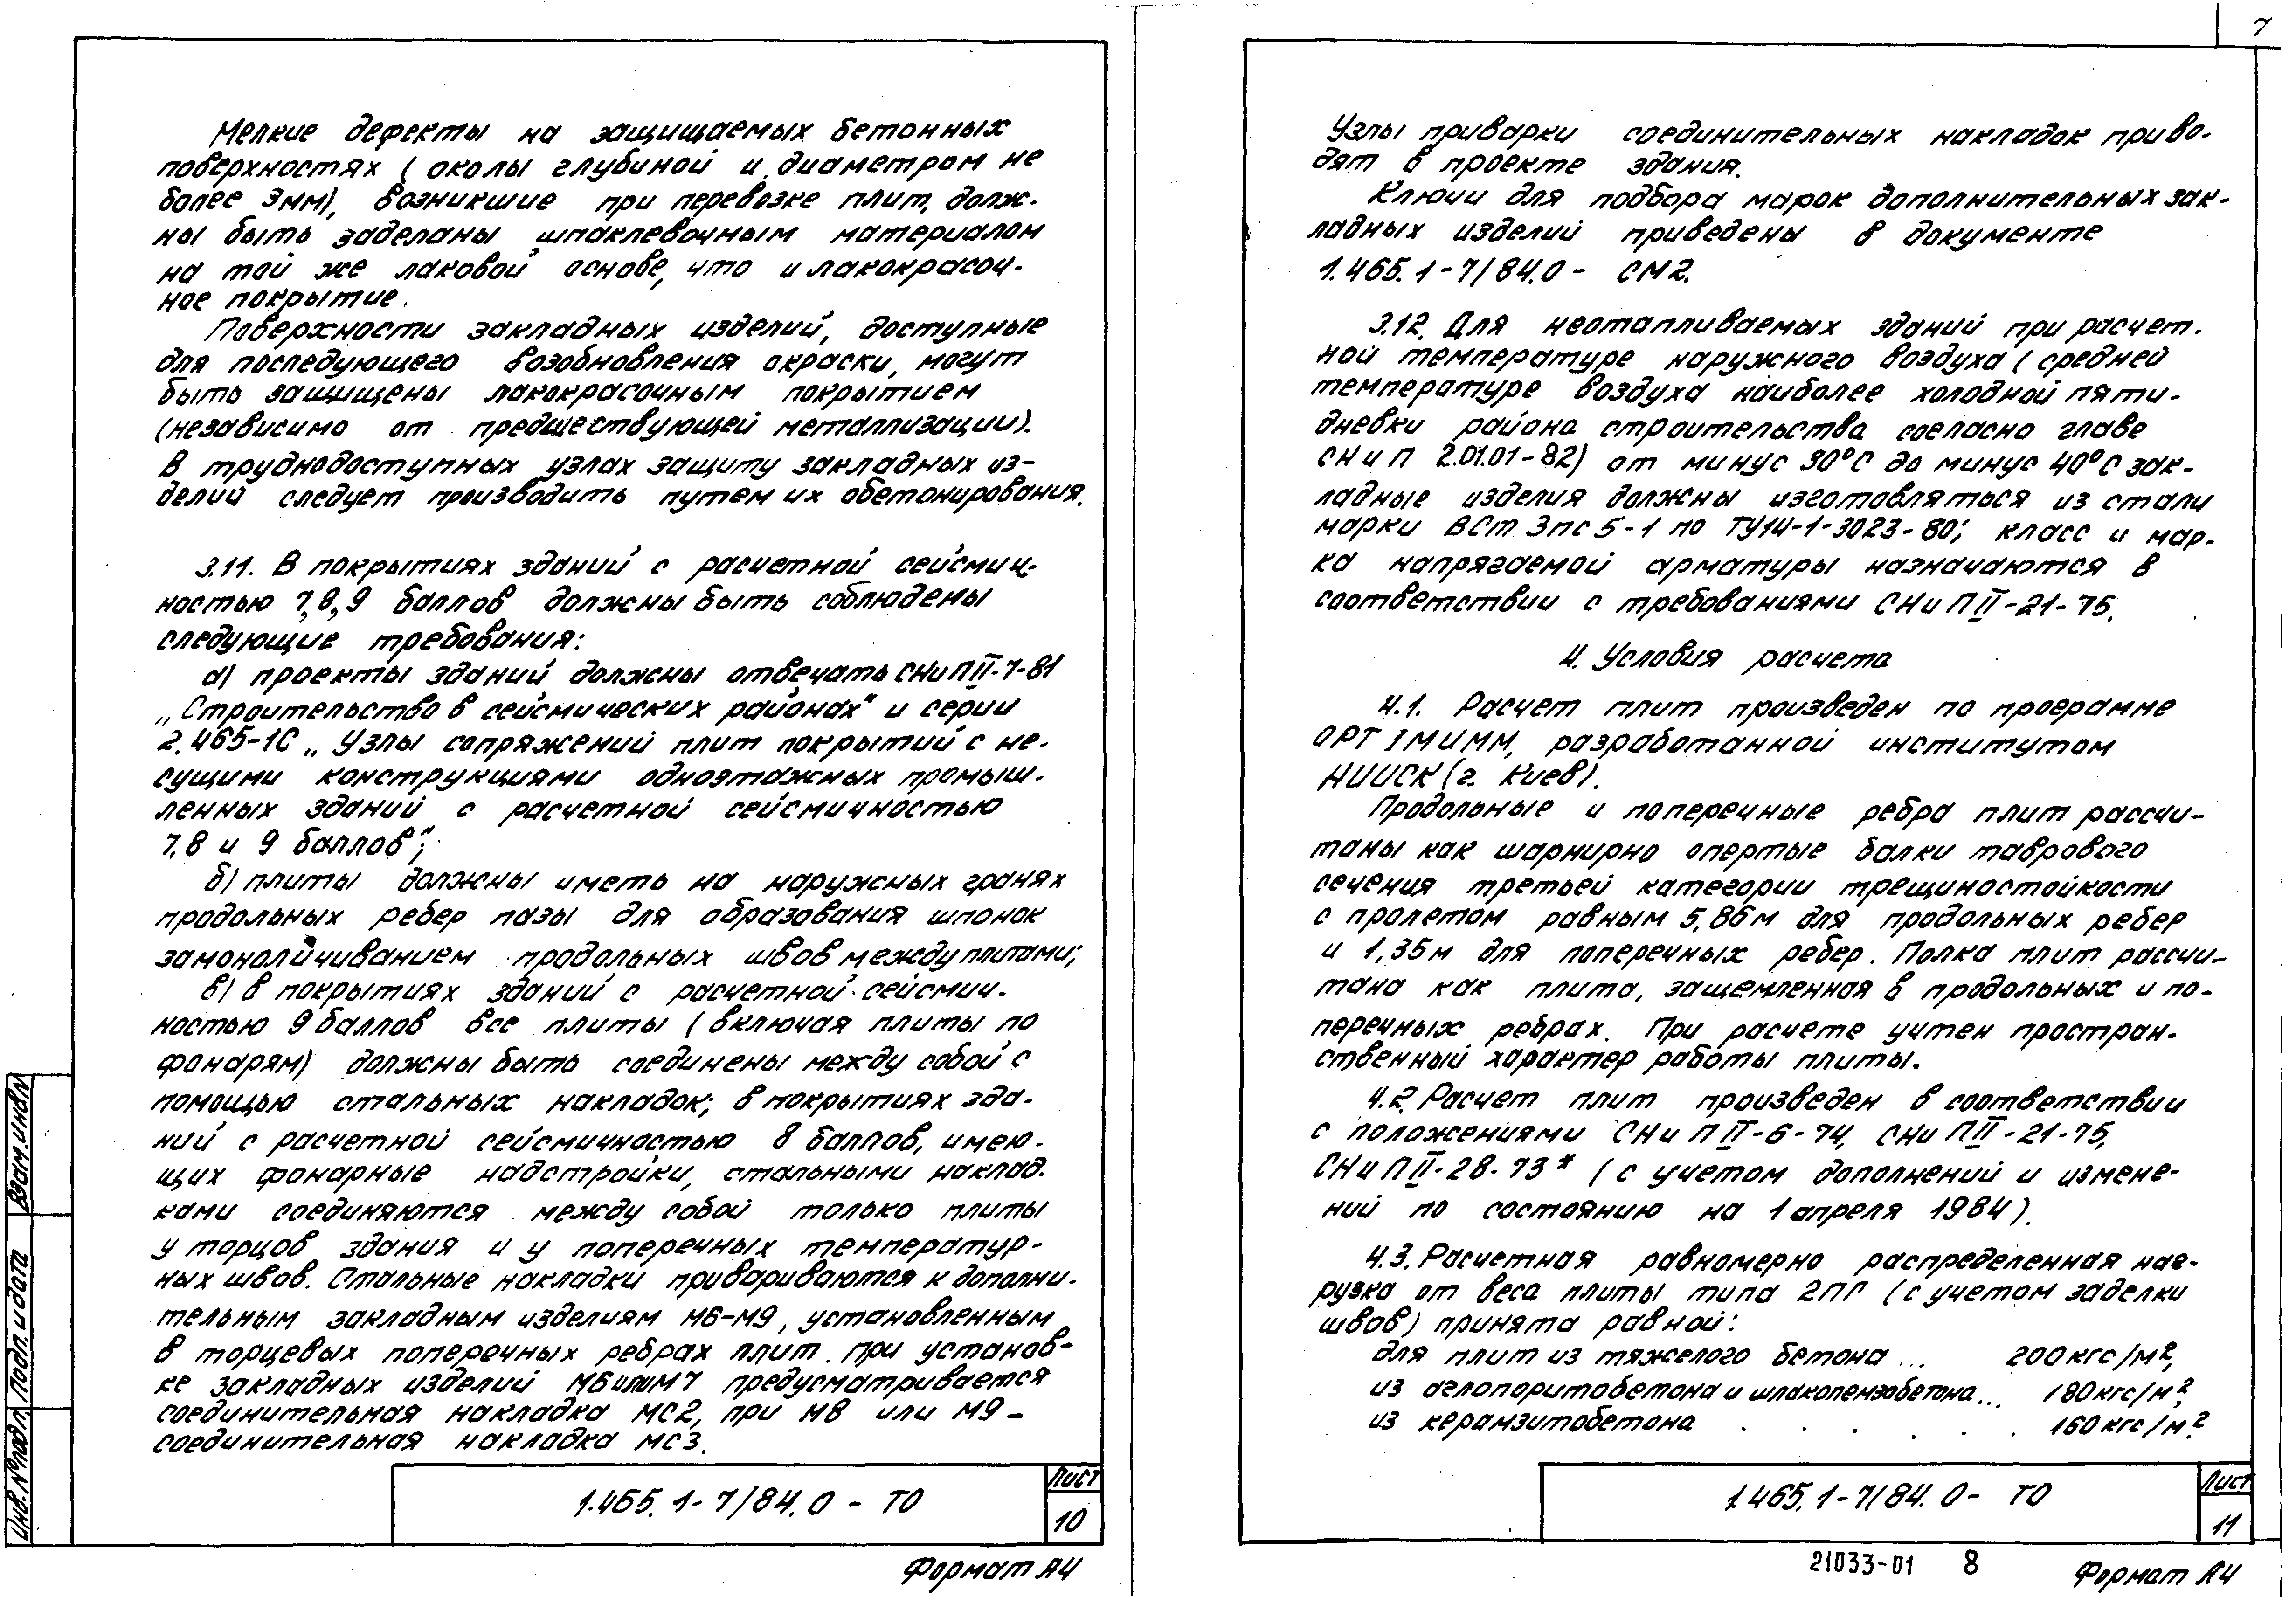 Мелкие дефекты на защищаемых бетонных
поверхностях (околы глубиной и диаметром не
более 3мм), возникшие при перевозке плит, долж-
ны быть заделаны шпаклевочным материалом
на той же лаковой основе, что и лакокрасоч-
ное покрытие.
Поверхности закладных изделий, доступные
для последующего возобновления окраски, могут
быть защищены лакокрасочным покрытием
(независимо от предшествующей металлизации).
В труднодоступных узлах защиту закладных из-
делий следует производить путем их обетонирования.
3.11. В покрытиях зданий с расчетной сейсмич-
ностью 7,8,9 баллов должны быть соблюдены
следующие требования:
а) проекты зданий должны отвечать СНиП II-7-81
„Строительство в сейсмических районах" и серии
2.465-1С „Узлы сопряжений плит покрытий с не-
сущими конструкциями одноэтажных промыш-
ленных зданий с расчетной сейсмичностью
7,8 и 9 баллов";
б) плиты должны иметь на наружных гранях
продольных ребер пазы для образования шпонок
замоноличиванием продольных швов между плитами;
в) в покрытиях зданий с расчетной сейсмич-
ностью 9 баллов все плиты (включая плиты по
фонарям) должны быть соединены между собой с
помощью стальных накладок; в покрытиях зда-
ний с расчетной сейсмичностью 8 баллов, имею-
щих фонарные надстройки, стальными наклад-
ками соединяются между собой только плиты
у торцов здания и у поперечных температур-
ных швов. Стальные накладки привариваются к дополни-
тельным закладным изделиям М6-М9, установленным
в торцевых поперечных ребрах плит. При установ-
ке закладных изделий М6 или М7 предусматривается
соединительная накладка МС2, при М8 или М9-
соединительная накладка МС3.
1.465.1-7/84.0 - ТО
Лист
10
Формат А4
Инв.№ подл.
Подп. и дата
Взам.инв№
7
Узлы приварки соединительных накладок приво-
дят в проекте здания.
Ключи для подбора марок дополнительных зак-
ладных изделий приведены в документе
1.465.1-7/84.0- СМ2.
3.12. Для неотапливаемых зданий при расчет-
ной температуре наружного воздуха (средней
температуре воздуха наиболее холодной пяти-
дневки района строительства согласно главе
СНиП 2.01.01-82) от минус 30°С до минус 40°С зак-
ладные изделия должны изготовляться из стали
марки ВСт 3пс5-1 по ТУ14-1-3023-80; класс и мар-
ка напрягаемой арматуры назначаются в
соответствии с требованиями СНиП II-21-75.
4. Условия расчета
4.1. Расчет плит произведен по программе
ОРТIМИММ, разработанной институтом
НИИСК (г. Киев).
Продольные и поперечные ребра плит рассчи-
таны как шарнирно опертые балки таврового
сечения третьей категории трещиностойкости
с пролетом равным 5,86м для продольных ребер
и 1,35м для поперечных ребер. Полка плит рассчи-
тана как плита, защемленная в продольных и по-
перечных ребрах. При расчете учтен простран-
ственный характер работы плиты.
4.2. Расчет плит произведен в соответствии
с положениями СНиП II-6-74, СНиП II-21-75,
СНиП II-28-73* (с учетом дополнений и измене-
ний по состоянию на 1 апреля 1984).
4.3. Расчетная равномерно распределенная наг-
рузка от веса плиты типа 2ПГ (с учетом заделки
швов) принята равной:
для плит из тяжелого бетона ... 200кгс/м²,
из аглопоритобетона и шлакопемзобетона... 180кгс/м²,
из керамзитобетона . . . . . . 160кгс/м².
1.465.1-7/84.0- ТО
Лист
11
21033-01 8
Формат А4